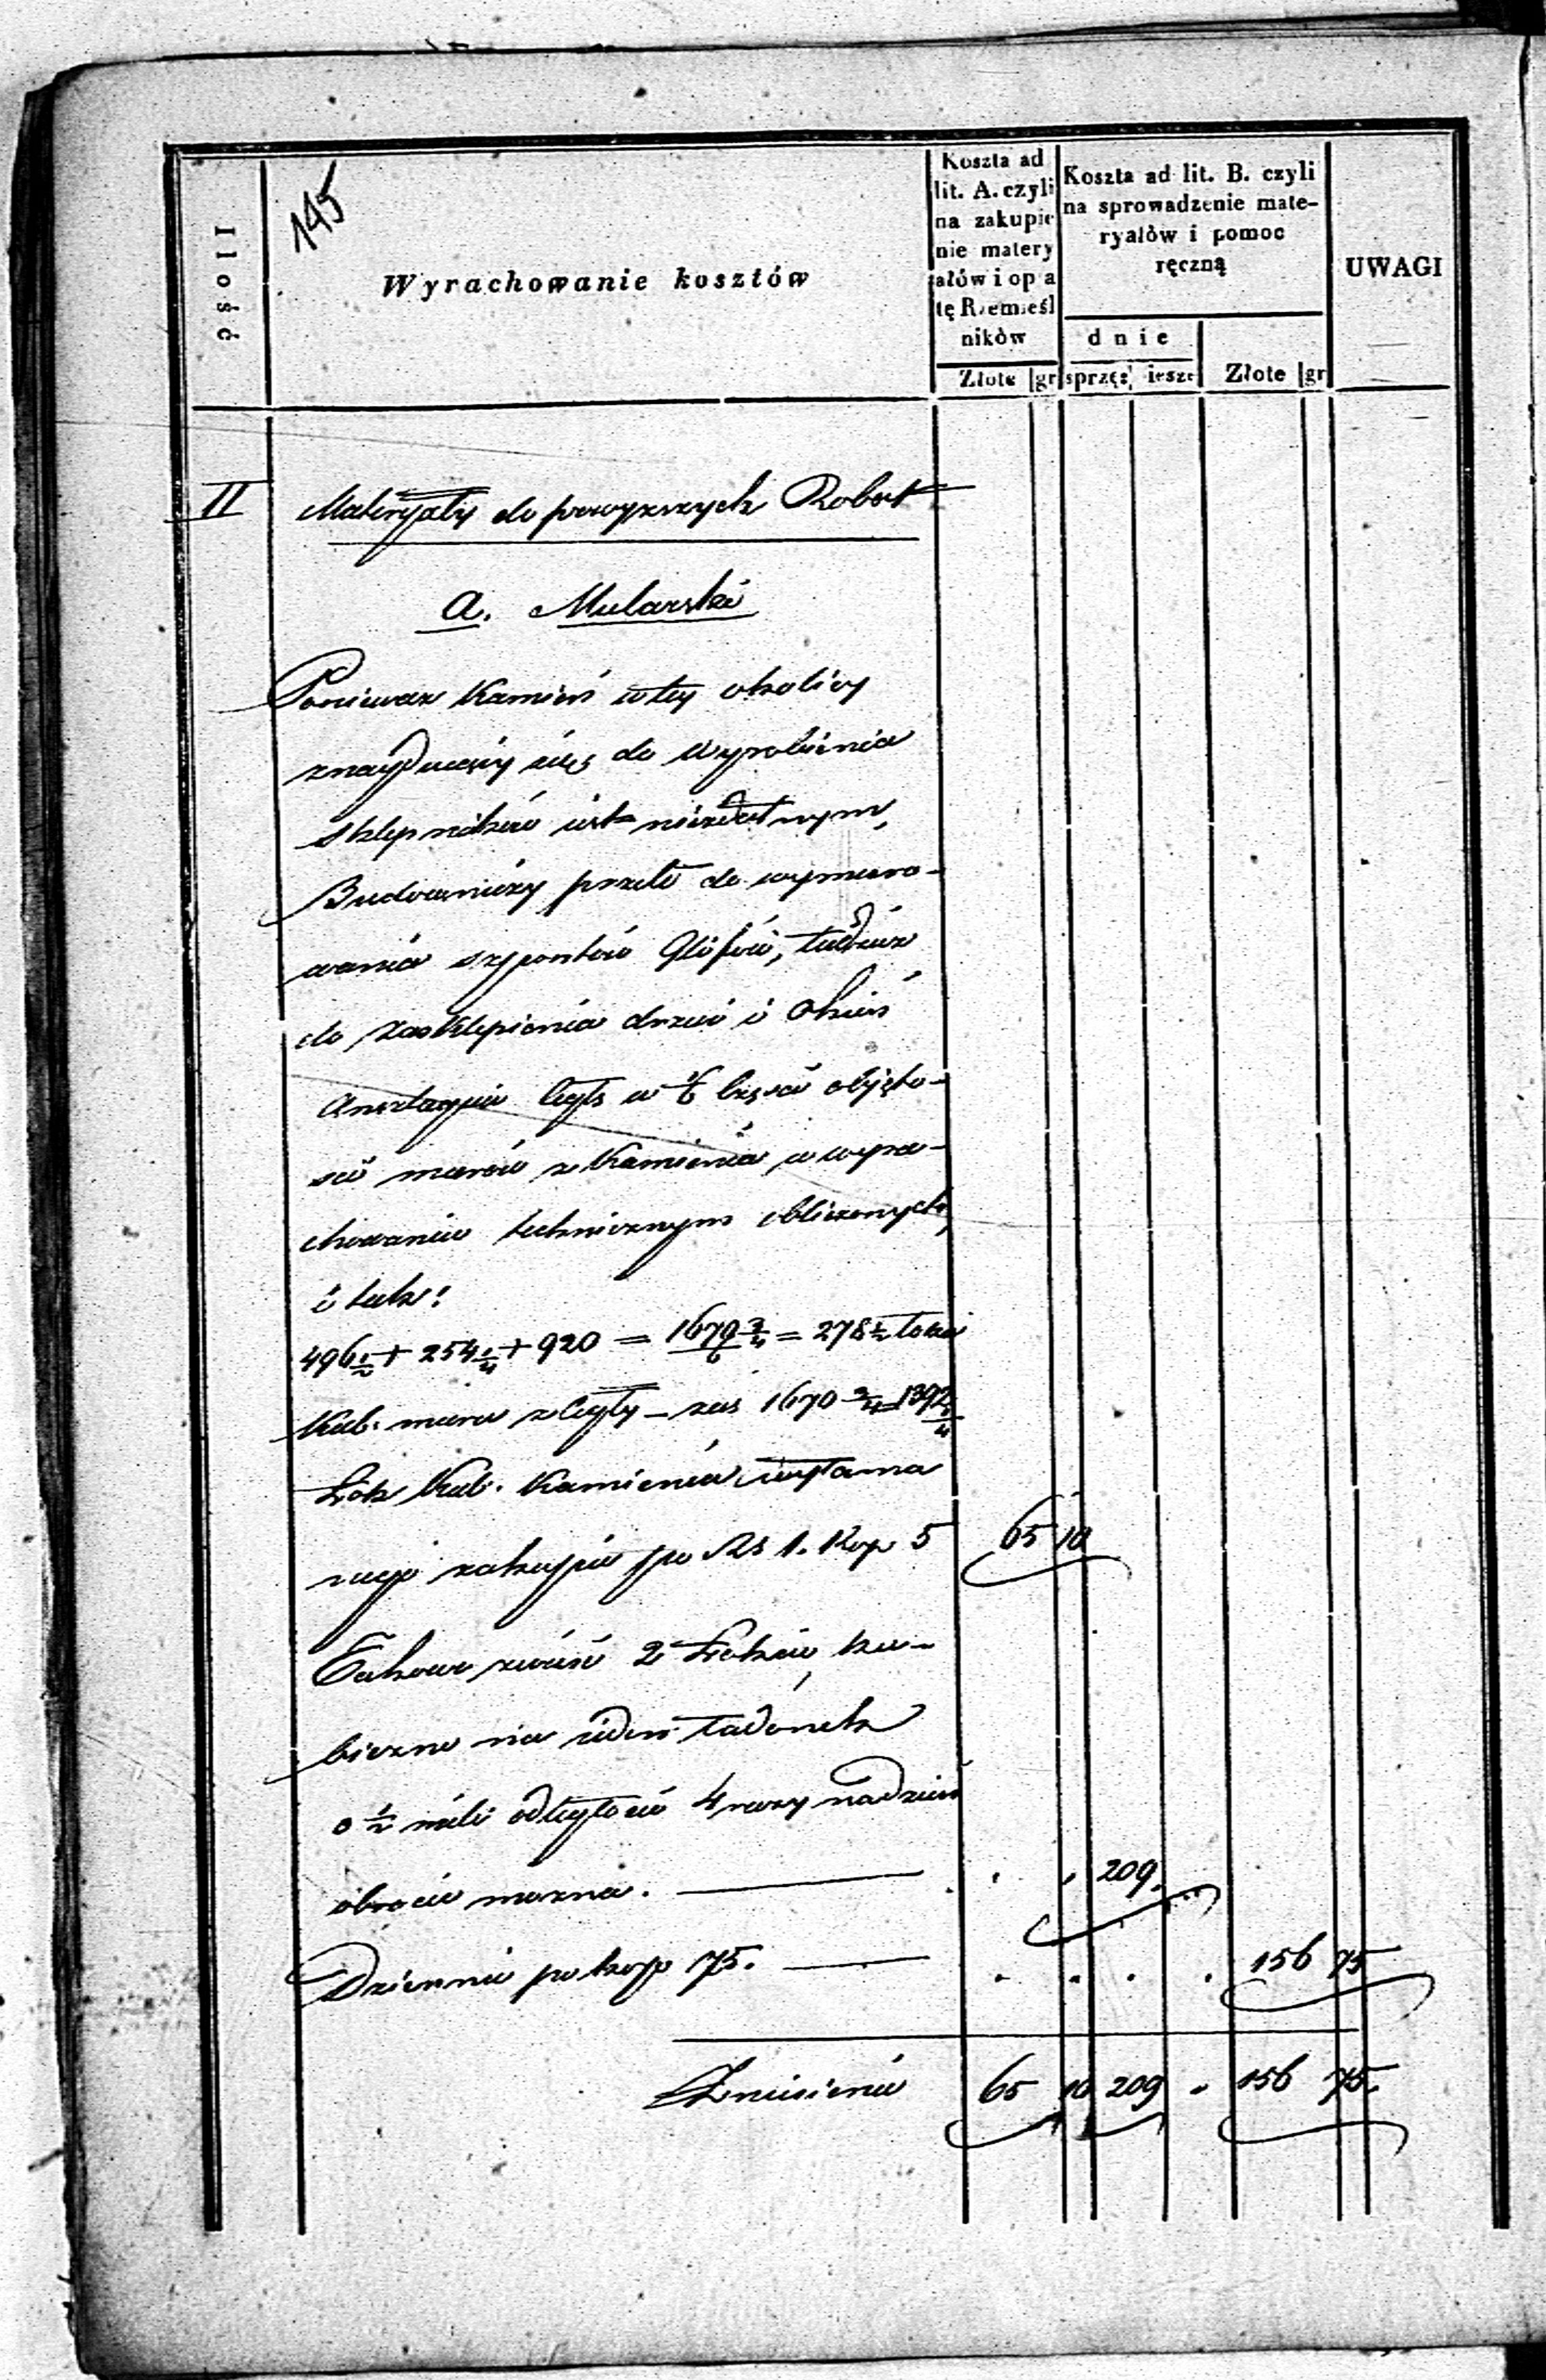 145
Ilość
Wyrachowanie kosztów
Koszta ad
lit. A. czyli
na zakupie
nie matery
ałów i opa
tę Rzemieśl
ników
Złote gr
Koszta ad lit. B. czyli
na sprowadzenie mate-
ryałów i pomoc
ręczną
dnie
sprzęż iesze Złote gr
UWAGI
II Materyały do powyższych Robot
a. Mularskie
Ponieważ Kamień w tey okolicy
znayduiący się do wyrobienia
sklepników iest niezdatnym,
Budowniczy przeto do wymuro-
wania Glifów, tudzież
do zasklepienia drzwi i okien
cegłę w 1/6 części objęto-
ści murów z Kamienia w wyra-
chowaniu technicznym obliczonych,
i tak:
496 1/2 + 254 1/4 + 920 = 1670 3/4 / 6 = 278 1/2 łokci
Kub. muru z cegły – zaś 1670 3/4 1392 1/4
Łok Kub. Kamienia
zakupić po Rs 1. Kop 5 65 10
Takowe zwieść 2 Łokcie ku-
biczne na ieden ładunek
o 1/2 mili odległości 4 razy na dzień
obrócić można. — . . 209.
Dziennie po kop 75. — . . . . 156 75
Zniesienie 65 10 209 . 156 75.